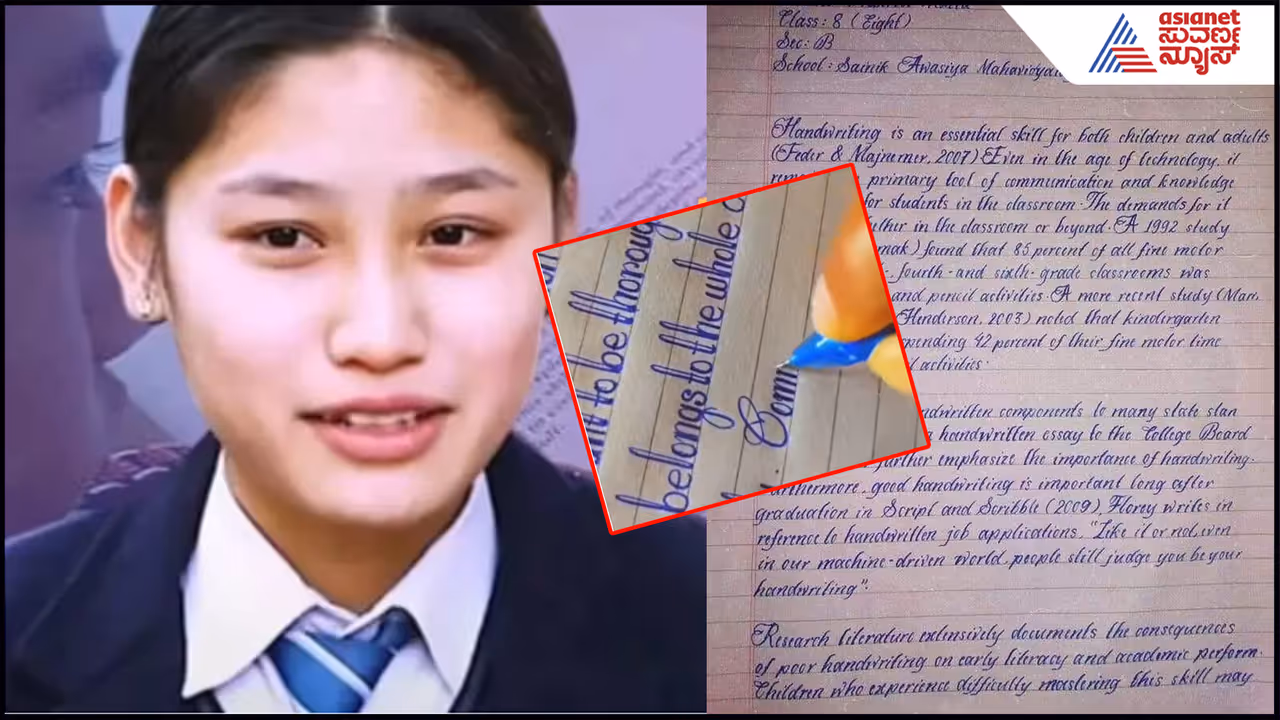 asianet
ಸುವರ್ಣ
ನ್ಯೂಸ್
Class: 8 (Eight)
Sec: B
School: Sainik Awasiya
Handwriting is an essential skill for both children and adults
(Feder & Majnemer, 2007) Even in the age of technology, it
primary tool of communication and knowledge
for students in the classroom. The demands for it
in the classroom or beyond. A 1992 study
found that 85 percent of all fine motor
fourth- and sixth-grade classrooms was
and pencil activities. A more recent study (Marr,
Henderson, 2003) noted that kindergarten
42 percent of their fine motor time
activities.
components to many state stan
a handwritten essay to the College Board
further emphasize the importance of handwriting.
Furthermore, good handwriting is important long after
graduation in Script and Scribble (2009), Florey writes in
reference to handwritten job applications, "Like it or not, even
in our machine-driven world, people still judge you be your
handwriting".
Research literature extensively documents the consequences
of poor handwriting on early literacy and academic perform.
Children who experience difficulty mastering this skill may
to be thoroug
belongs to the whole
Comm